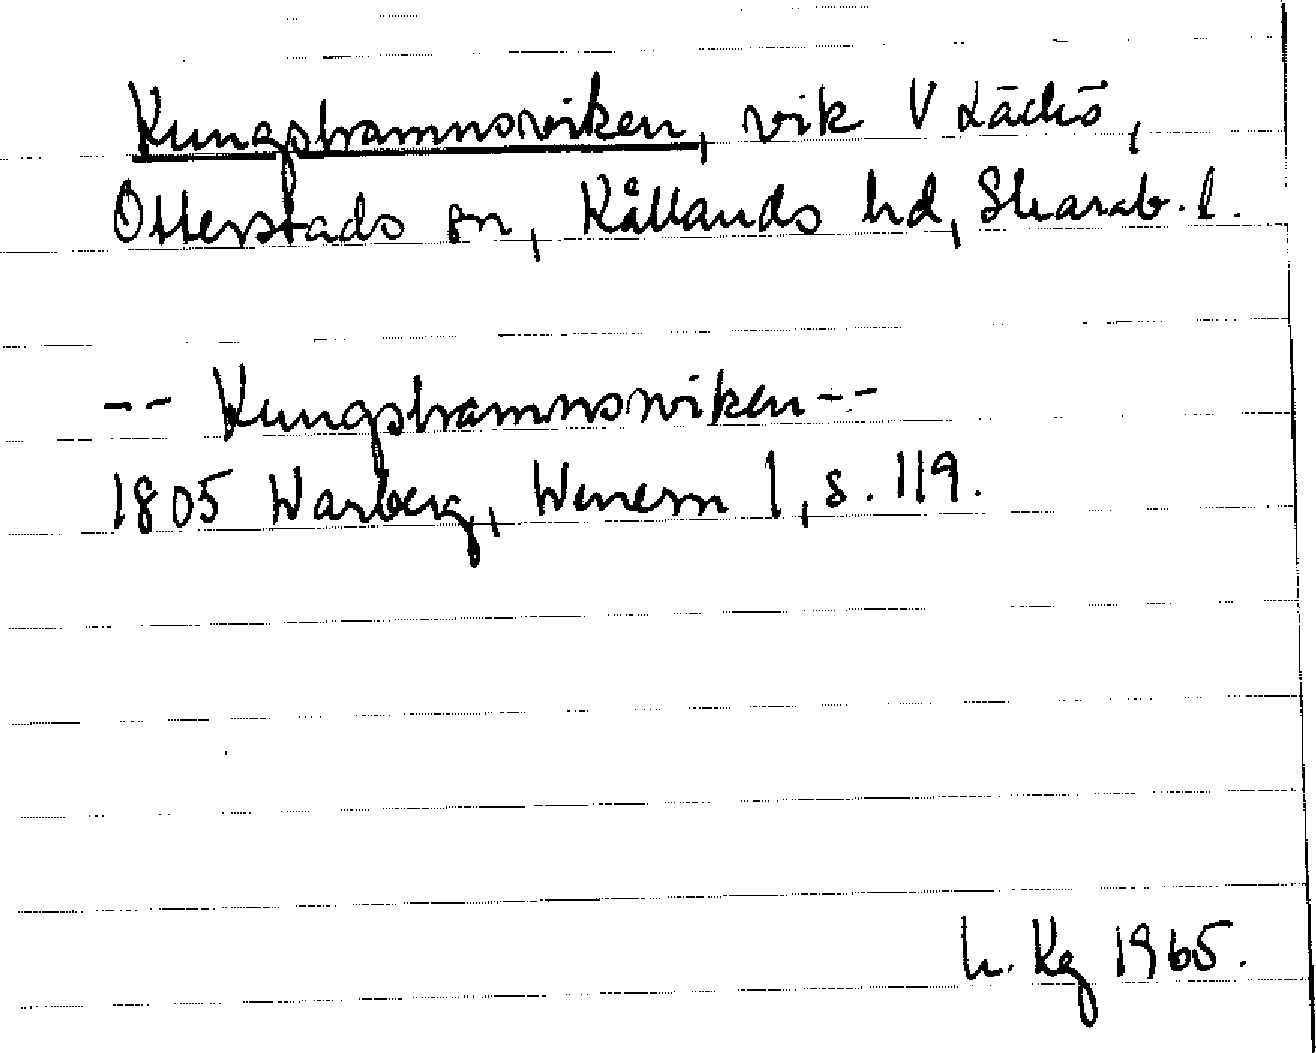 Kungshamnsviken, vik V Läckö,
Otterstads sn, Kållands hd, Skarab. l.
-- Kungshamnswiken --
1805 Warberg, Wenern 1, s. 119.
h. Kg 1965.